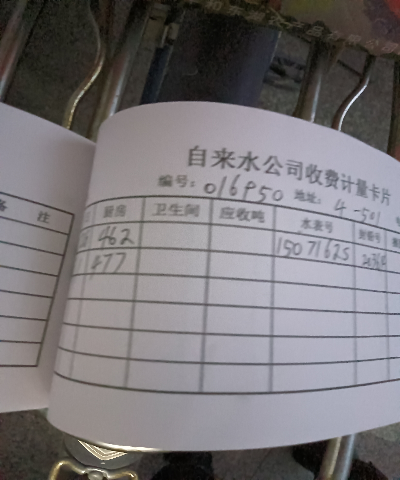 自来水公司收费计量卡片
编号: 016950 地址: 4-501
备 注
厨房 卫生间 应收吨 水表号
462 15071625
477